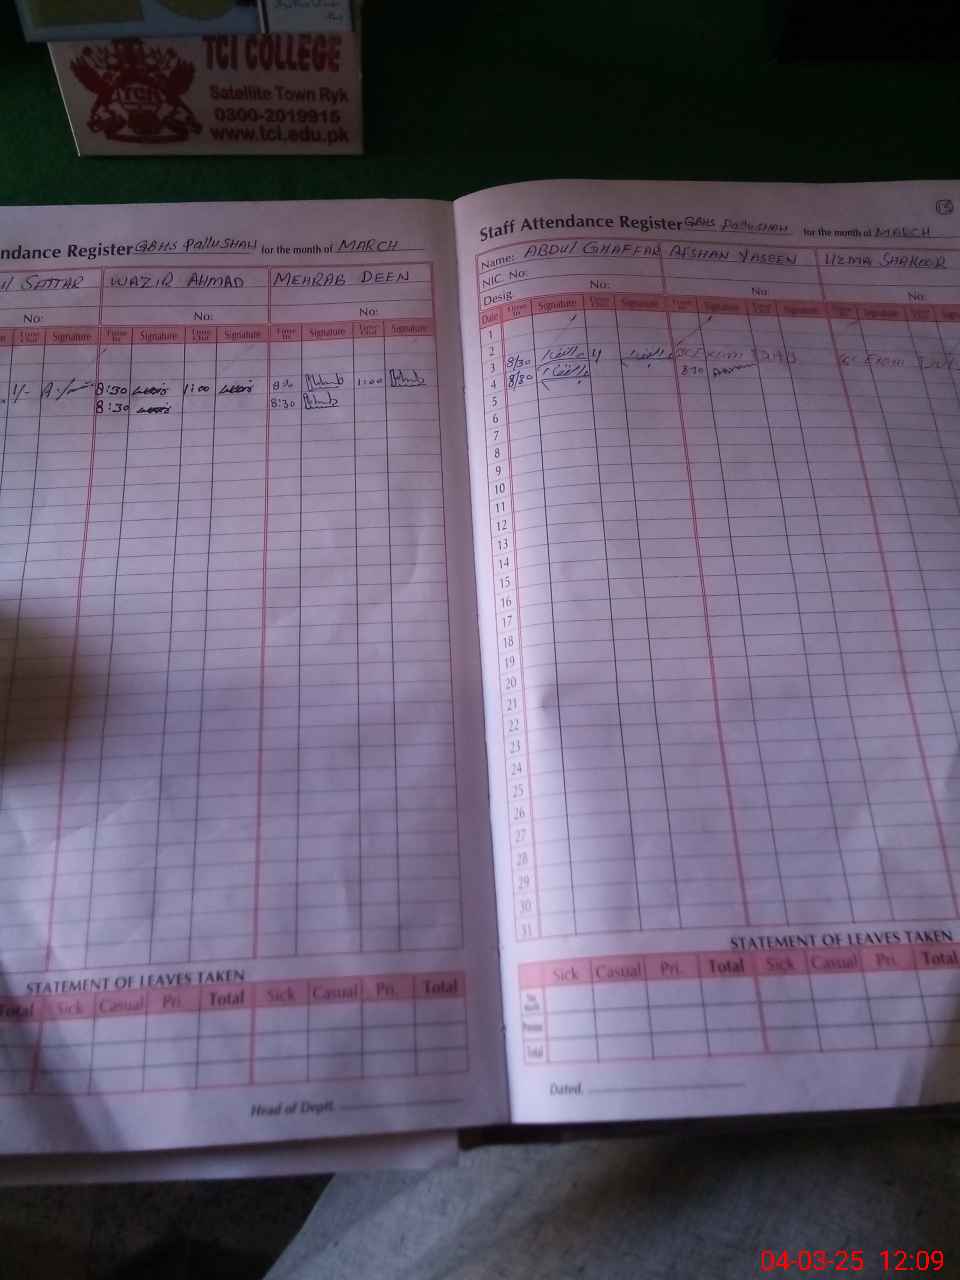 TCI COLLEGE
TCI
Satellite Town Ryk
0300-2019915
www.tci.edu.pk
ndance Register GBHS Pallu SHAH for the month of MARCH
SATTAR WAZIR AHMAD MEHRAB DEEN
No: No: No:
Time Out Signature Time In Signature Time Out Signature Time In Signature Time Out Signature
1/- 8:30 1:00 8:30 1:00
8:30 8:30
STATEMENT OF LEAVES TAKEN
Total Sick Casual Pri. Total Sick Casual Pri. Total
Head of Deptt.
Staff Attendance Register GBHS Pallu SHAH for the month of MARCH
Name: ABDUL GHAFFAR AFSHAN YASEEN UZMA SHAKOOR
NIC. No:
Desig. No: No: No:
Date Time In Signature Time Out Signature Time In Signature Time Out Signature Signature
1
2
3 8/30
4 8/30 8:30
5
6
7
8
9
10
11
12
13
14
15
16
17
18
19
20
21
22
23
24
25
26
27
28
29
30
31
STATEMENT OF LEAVES TAKEN
Sick Casual Pri. Total Sick Casual Pri. Total
This Month
Previous
Total
Dated.
04-03-25 12:09